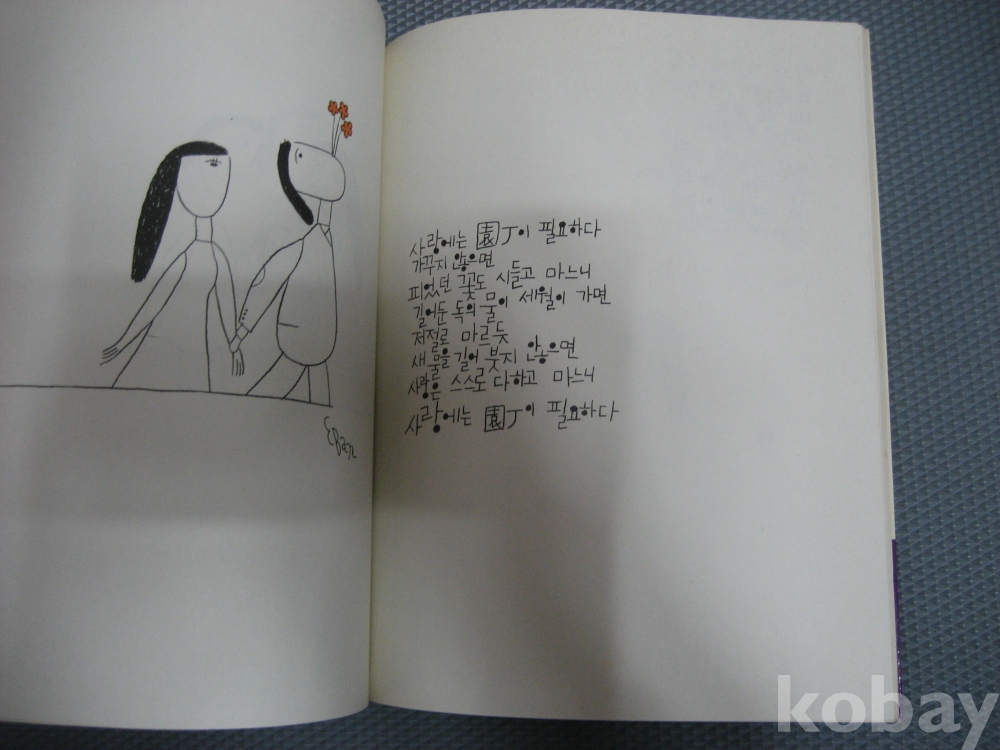 사랑에는 園丁이 필요하다
가꾸지 않으면
피었던 꽃도 시들고 마느니
길어둔 독의 물이 세월이 가면
저절로 마르듯
새 물을 길어 붓지 않으면
사랑은 스스로 다하고 마느니
사랑에는 園丁이 필요하다
kobay